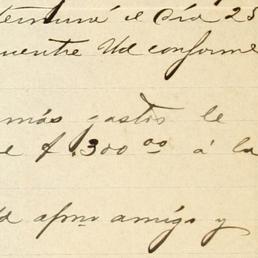 terminará el Día 25
cuentre Ud conforme
más gastos le
e $ 300 00 á la
afmo amigo y